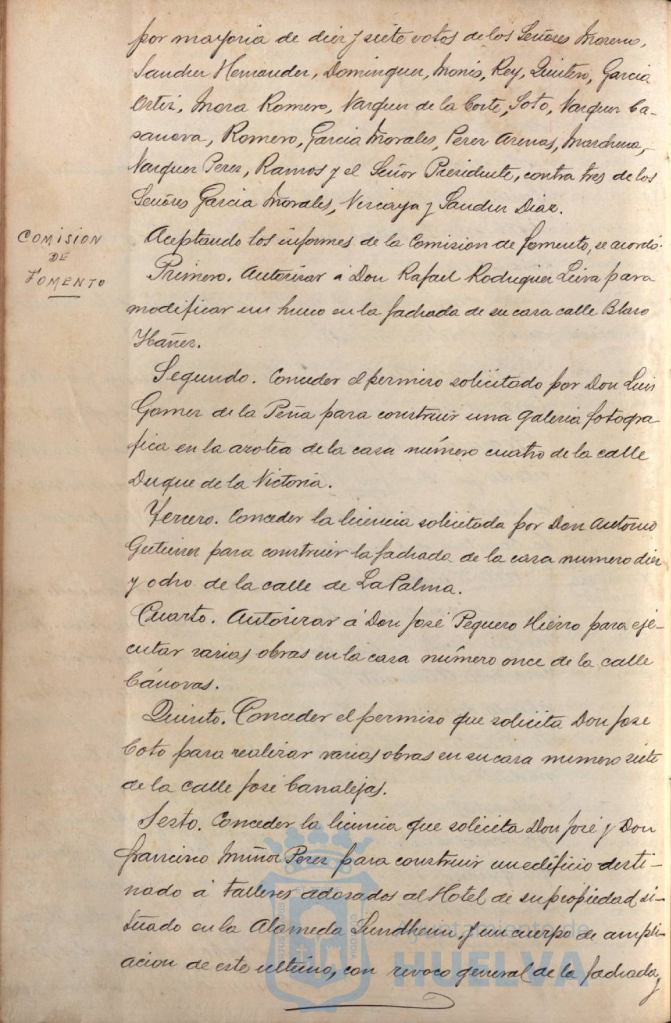 por mayoria de diez y siete votos de los Señores Moreno,
Sanchez Hernandez, Dominguez, Monis, Rey, Quintero, Garcia
Ortiz, Mora Romero, Vazquez de la Corte, Soto, Vazquez Ca-
sanova, Romero, Garcia Morales, Perez Arenas, Marchena,
Vazquez Perez, Ramos y el Señor Presidente, contra tres de los
Señores Garcia Morales, Vizcaya y Sanchez Diaz.
COMISION
DE
FOMENTO
Aceptando los informes de la Comision de Fomento, se acordó:
Primero. Autorizar á Don Rafael Rodriguez Leiva para
modificar un hueco en la fachada de su casa calle Blasco
Ybañez.
Segundo. Conceder el permiso solicitado por Don Luis
Gomez de la Peña para construir una galeria fotogra
fica en la azotea de la casa número cuatro de la calle
Duque de la Victoria.
Tercero. Conceder la licencia solicitada por Don Antonio
Gutierrez para construir la fachada de la casa numero diez
y ocho de la calle de La Palma.
Cuarto. Autorizar á Don José Peguero Hierro para eje-
cutar varias obras en la casa número once de la calle
Cánovas.
Quinto. Conceder el permiso que solicita Don Jose
Coto para realizar varias obras en su casa numero siete
de la calle José Canalejas.
Sexto. Conceder la licencia que solicita Don José y Don
Francisco Muñoz Perez para construir un edificio desti-
nado á talleres adosados al Hotel de su propiedad si-
tuado en la Alameda Sundheim, y un cuerpo de ampli-
acion de este ultimo, con revoco general de la fachada, y
Ayuntamiento de
HUELVA